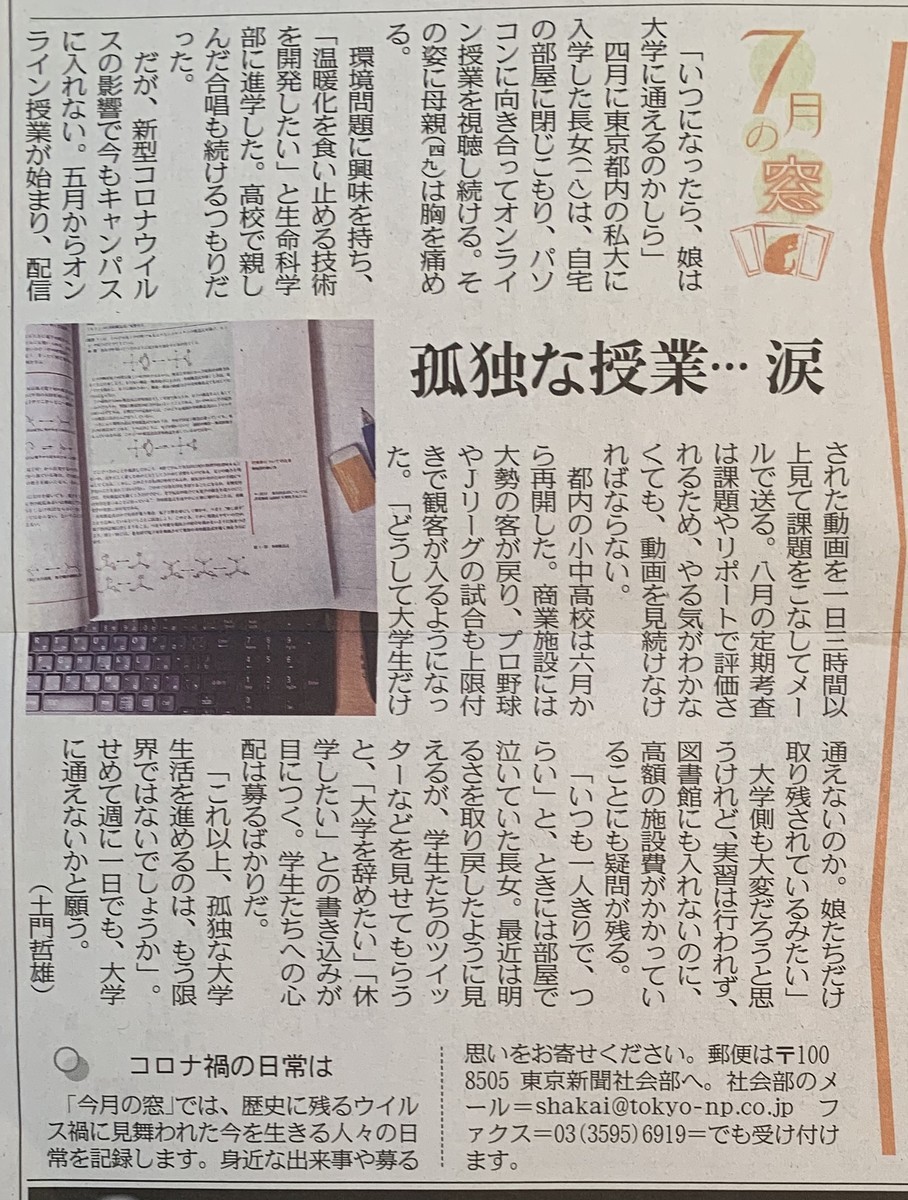 7月の窓
孤独な授業…涙
「いつになったら、娘は
大学に通えるのかしら」
四月に東京都内の私大に
入学した長女(一八)は、自宅
の部屋に閉じこもり、パソ
コンに向き合ってオンライ
ン授業を視聴し続ける。そ
の姿に母親(四九)は胸を痛め
る。
環境問題に興味を持ち、
「温暖化を食い止める技術
を開発したい」と生命科学
部に進学した。高校で親し
んだ合唱も続けるつもりだ
った。
だが、新型コロナウイル
スの影響で今もキャンパス
に入れない。五月からオン
ライン授業が始まり、配信
された動画を一日三時間以
上見て課題をこなしてメー
ルで送る。八月の定期考査
は課題やリポートで評価さ
れるため、やる気がわかな
くても、動画を見続けなけ
ればならない。
都内の小中高校は六月か
ら再開した。商業施設には
大勢の客が戻り、プロ野球
やJリーグの試合も上限付
きで観客が入るようになっ
た。「どうして大学生だけ
通えないのか。娘たちだけ
取り残されているみたい」
大学側も大変だろうと思
うけれど、実習は行われず、
図書館にも入れないのに、
高額の施設費がかかってい
ることにも疑問が残る。
「いつも一人きりで、つ
らい」と、ときには部屋で
泣いていた長女。最近は明
るさを取り戻したように見
えるが、学生たちのツイッ
ターなどを見せてもらう
と、「大学を辞めたい」「休
学したい」との書き込みが
目につく。学生たちへの心
配は募るばかりだ。
「これ以上、孤独な大学
生活を進めるのは、もう限
界ではないでしょうか」。
せめて週に一日でも、大学
に通えないかと願う。
(土門哲雄)
コロナ禍の日常は
「今月の窓」では、歴史に残るウイル
ス禍に見舞われた今を生きる人々の日
常を記録します。身近な出来事や募る
思いをお寄せください。郵便は〒100
8505 東京新聞社会部へ。社会部のメ
ール=shakai@tokyo-np.co.jp フ
ァクス=03(3595)6919=でも受け付け
ます。